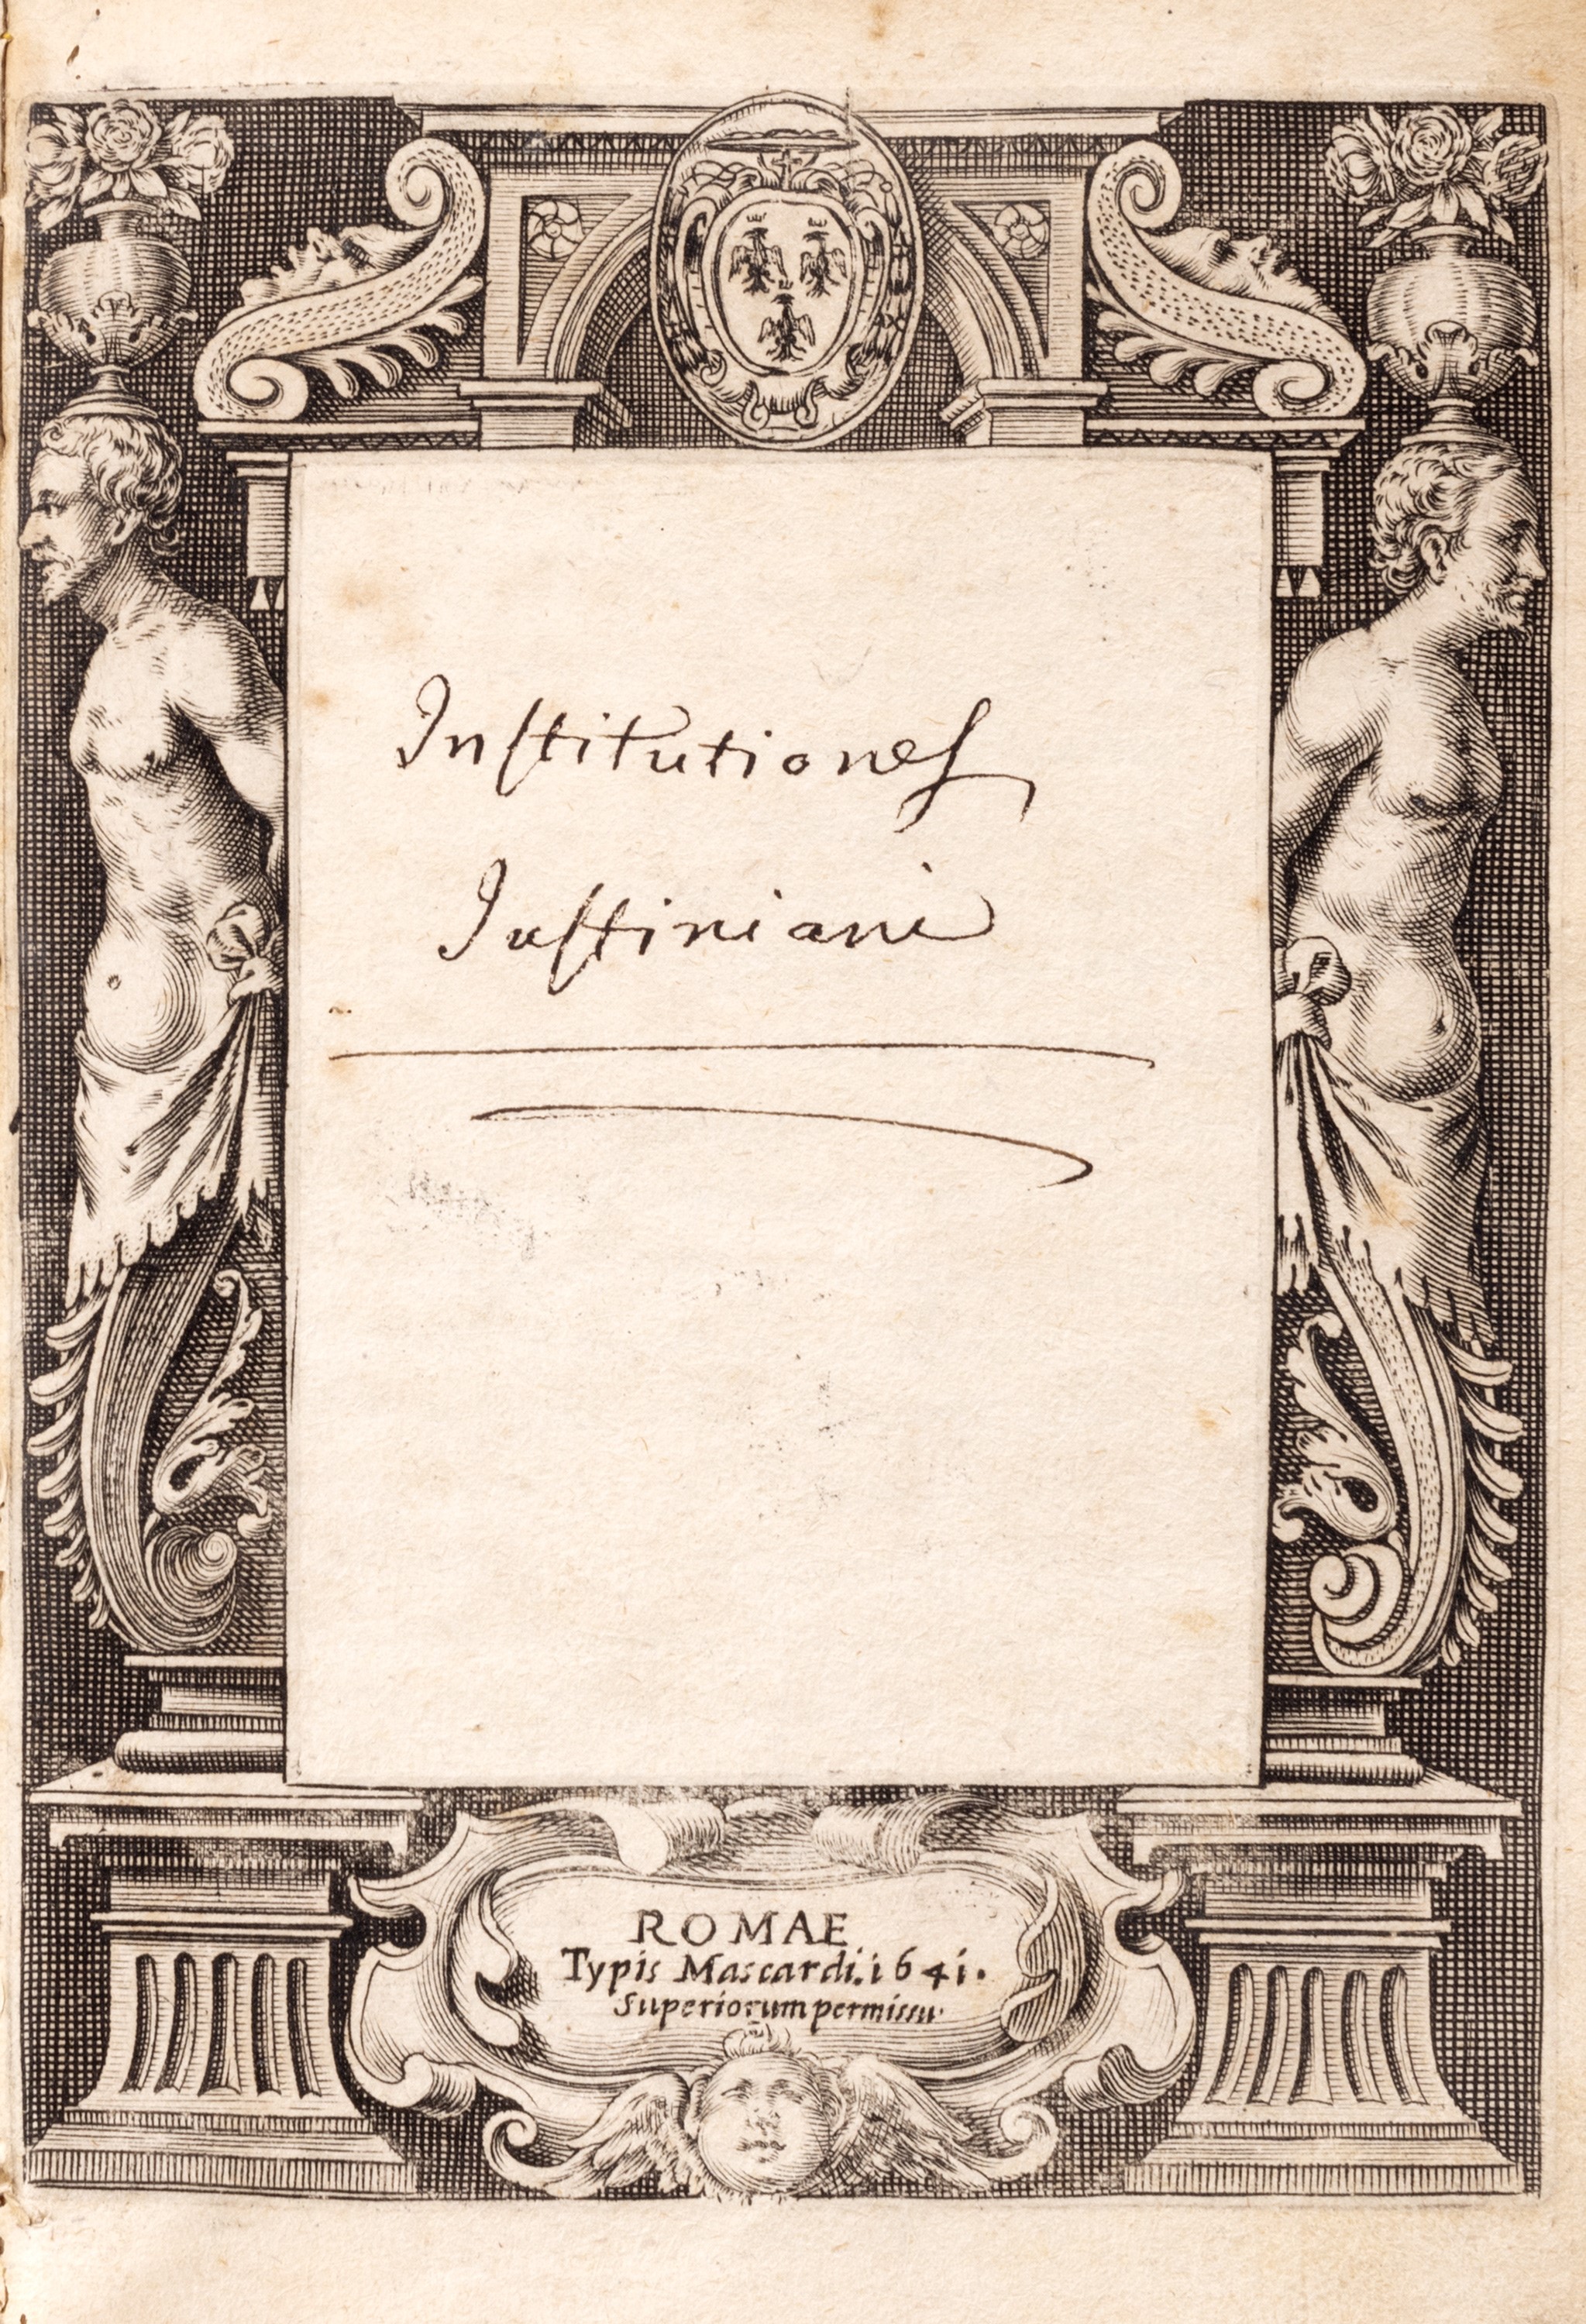 Institutiones
Iustiniani
ROMAE
Typis Mascardi. 1641.
Superiorum permissu